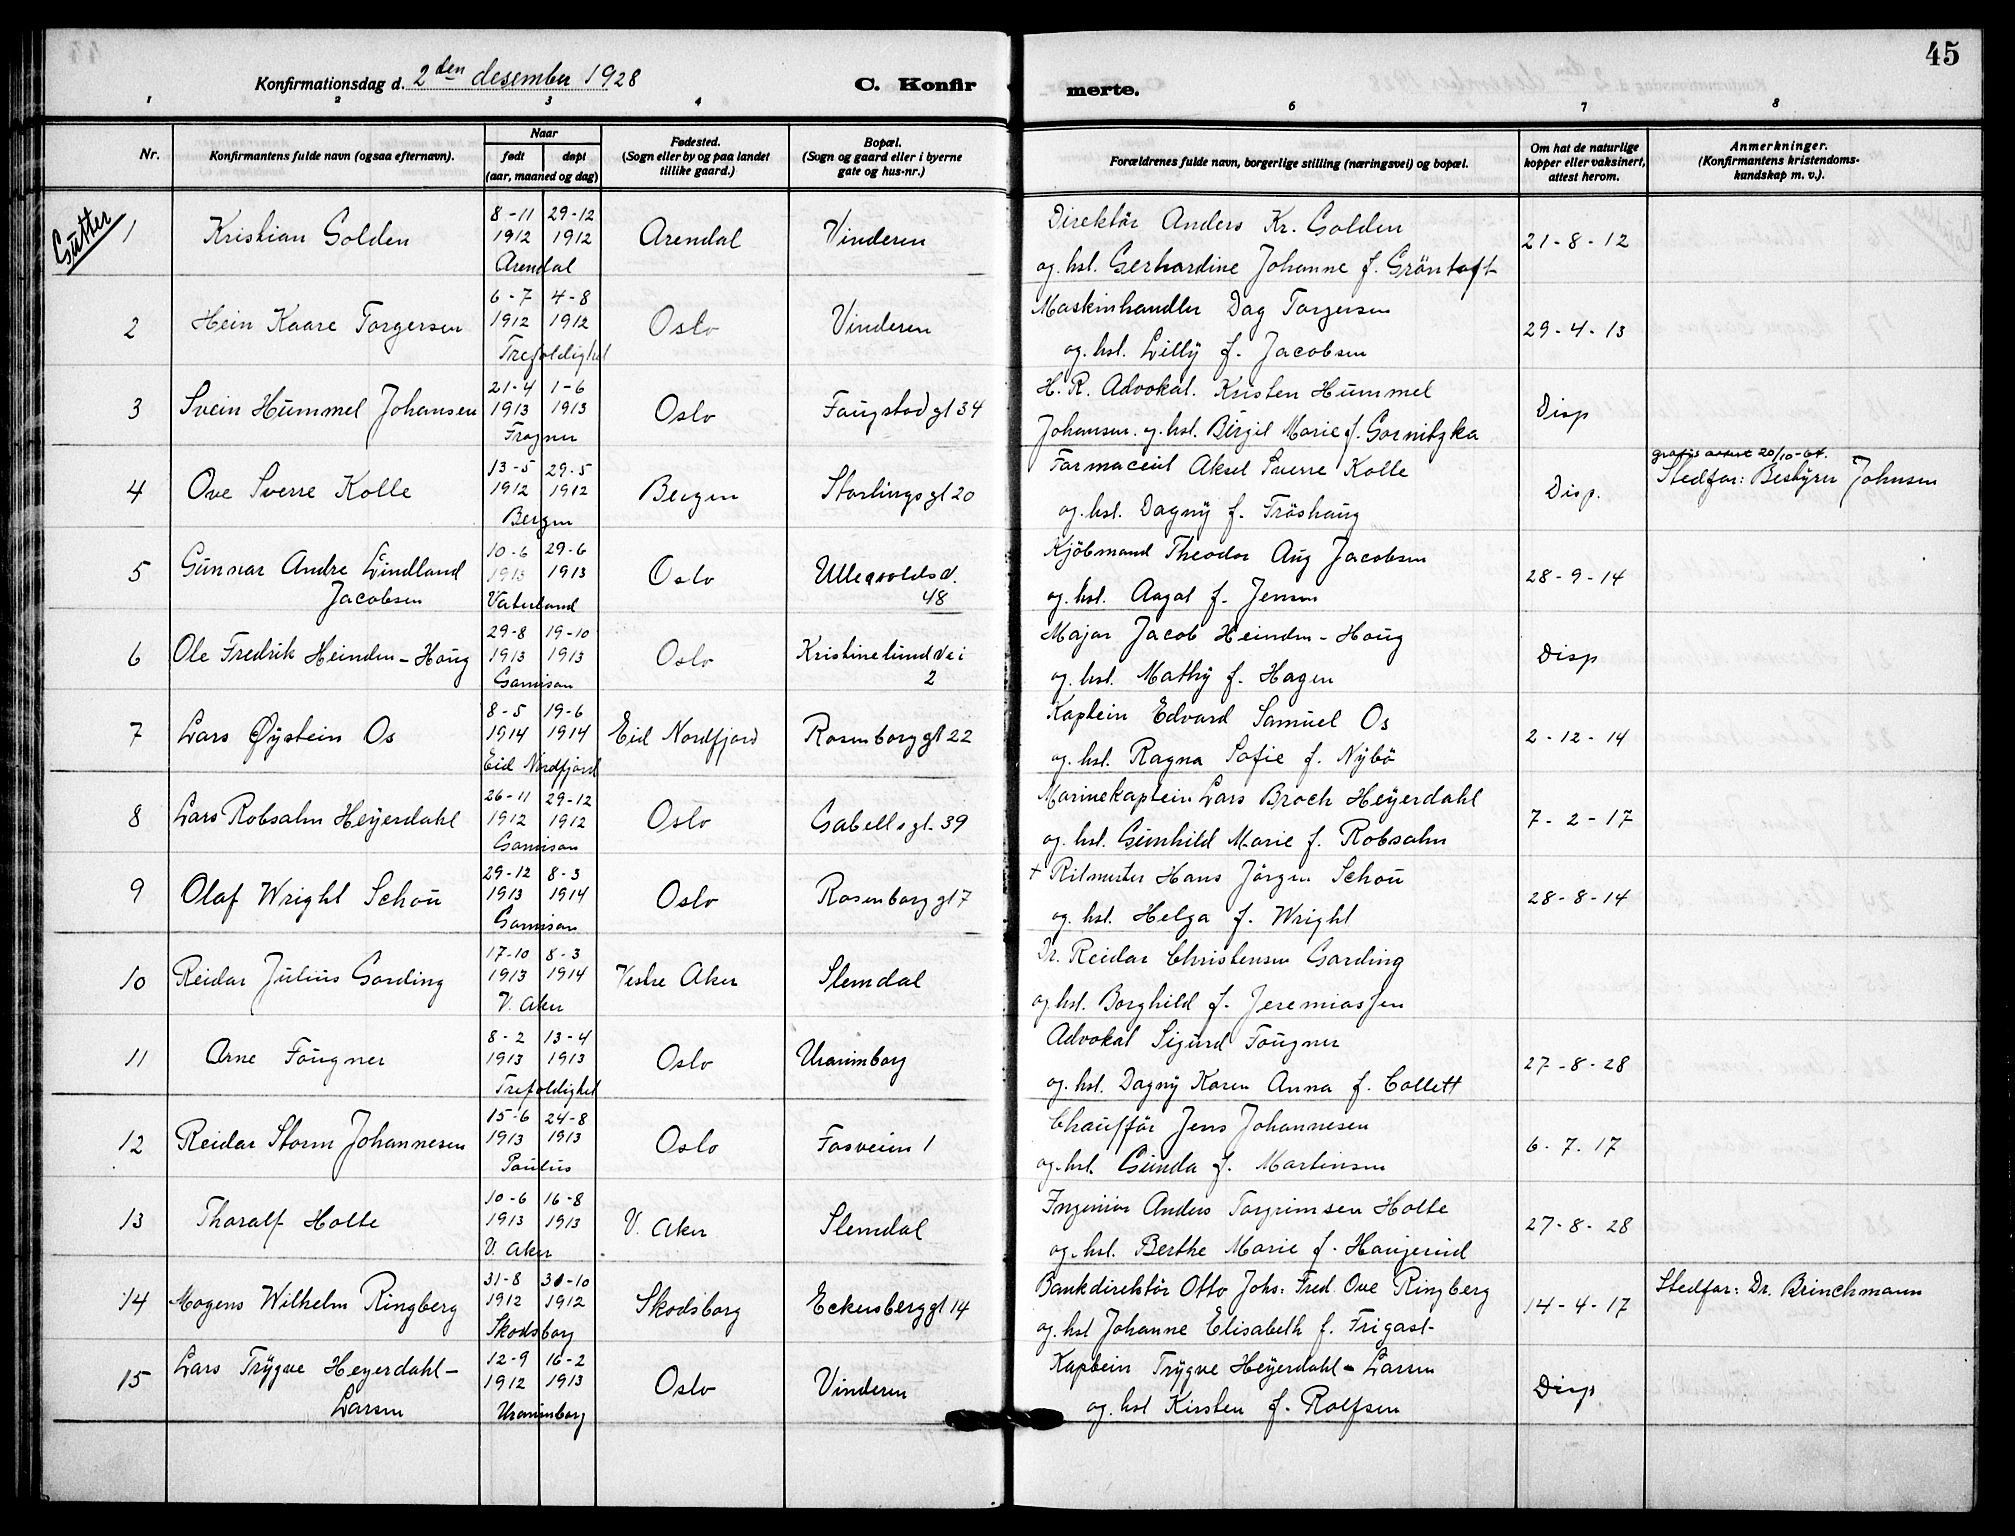 45
Konfirmationsdag d. 2den desember 1928
C. Konfir
merte.
1 2 3 4 6 7 8
Nr.
Konfirmantens fulde navn (ogsaa efternavn).
Naar
født døpt
(aar, maaned og dag)
Fødested.
(Sogn eller by og paa landet
tillike gaard.)
Bopæl.
(Sogn og gaard eller i byerne
gate og hus-nr.)
Forældrenes fulde navn, borgerlige stilling (næringsvei) og bopæl.
Om hat de naturlige
kopper eller vaksinert,
attest herom.
Anmerkninger.
(Konfirmantens kristendoms-
kundskap m. v.).
Gutter
1 Kristian Golden 8-11 1912 29-12 1912 Arendal Arendal Vinderen
Direktör Anders Kr. Golden
og hst. Gerhardine Johanne f. Gröntoft 21-8-12
2 Hein Kaare Torgersen 6-7 1912 4-8 1912 Trefoldighet Oslo Vinderen
Maskinhandler Dag Torgersen
og hst. Lilly f. Jacobsen 29-4-13
3 Svein Hummel Johansen 21-4 1913 1-6 1913 Frogner Oslo Faugstadgt 34
H. R. Advokat. Kristen Hummel
Johansen. og hst. Birgit Marie f. Gornitzka Disp
4 Ove Sverre Kolle 13-5 1912 29-5 1912 Bergen Bergen Stortingsgt 20
Farmaceut Aksel Sverre Kolle
og hst. Dagny f. Fröshaug Disp.
gratis attest 20/10-64.
Stedfar: Bestyrer Johnsen
5 Gunnar Andre Lindland
Jacobsen 10-6 1913 29-6 1913 Vaterland Oslo Ullevoldsv.
48
Kjöbmand Theodor Aug Jacobsen
og hst. Aagot f. Jensen 28-9-14
6 Ole Fredrik Heinden-Houg 29-8 1913 19-10 1913 Garnison Oslo Kristinelundvei
2
Major Jacob Heinden-Houg
og hst. Mathy f. Hagen Disp
7 Lars Øystein Os 8-5 1914 19-6 1914 Eid Nordfjord Eid Nordfjord Rosenborggt 22
Kaptein Edvard Samuel Os
og hst. Ragna Sofie f. Nybö 2-12-14
8 Lars Robsahm Heyerdahl 26-11 1912 29-12 1912 Garnison Oslo Gabelsgt. 39
Marinekaptein Lars Broch Heyerdahl
og hst. Gunhild Marie f. Robsahm 7-2-17
9 Olaf Wright Schou 29-12 1913 8-3 1914 Garnison Oslo Rosenborggt 7
+ Ritmester Hans Jörgen Schou
og hst. Helga f. Wright 28-8-14
10 Reidar Julius Gording 17-10 1913 8-3 1914 V. Aker Vestre Aker Slemdal
Dr. Reidar Christensen Gording
og hst. Borghild f. Jeremiassen
11 Arne Fougner 8-2 1913 13-4 1913 Trefoldighet Oslo Uranienborg
Advokat Sigurd Fougner
og hst. Dagny Karen Anna f. Collett 27-8-28
12 Reidar Storm Johannesen 15-6 1913 24-8 1913 Paulus Oslo Fosveien 1
Chaufför Jens Johannesen
og hst. Gunda f. Martinsen 6.7.17
13 Thoralf Holte 10-6 1913 16-8 1913 V. Aker V. Aker Slemdal
Ingeniör Anders Torgrimsen Holte
og hst. Berthe Marie f. Haugerud 27-8-28
14 Mogens Wilhelm Ringberg 31-8 1912 31-10 1912 Skodsborg Skodsborg Eckersberggt 14
Bankdirektör Otto Johs: Fred. Ove Ringberg
og hst Johanne Elisabeth f. Frigast 14-4-17
Stedfar: Dr. Brinchmann
15 Lars Trygve Heyerdahl-
Larsen 12-9 1912 16-2 1913 Uranienborg Oslo Vinderen
Kaptein Trygve Heyerdahl-Larsen
og hst Kirsten f. Rolfsen Disp